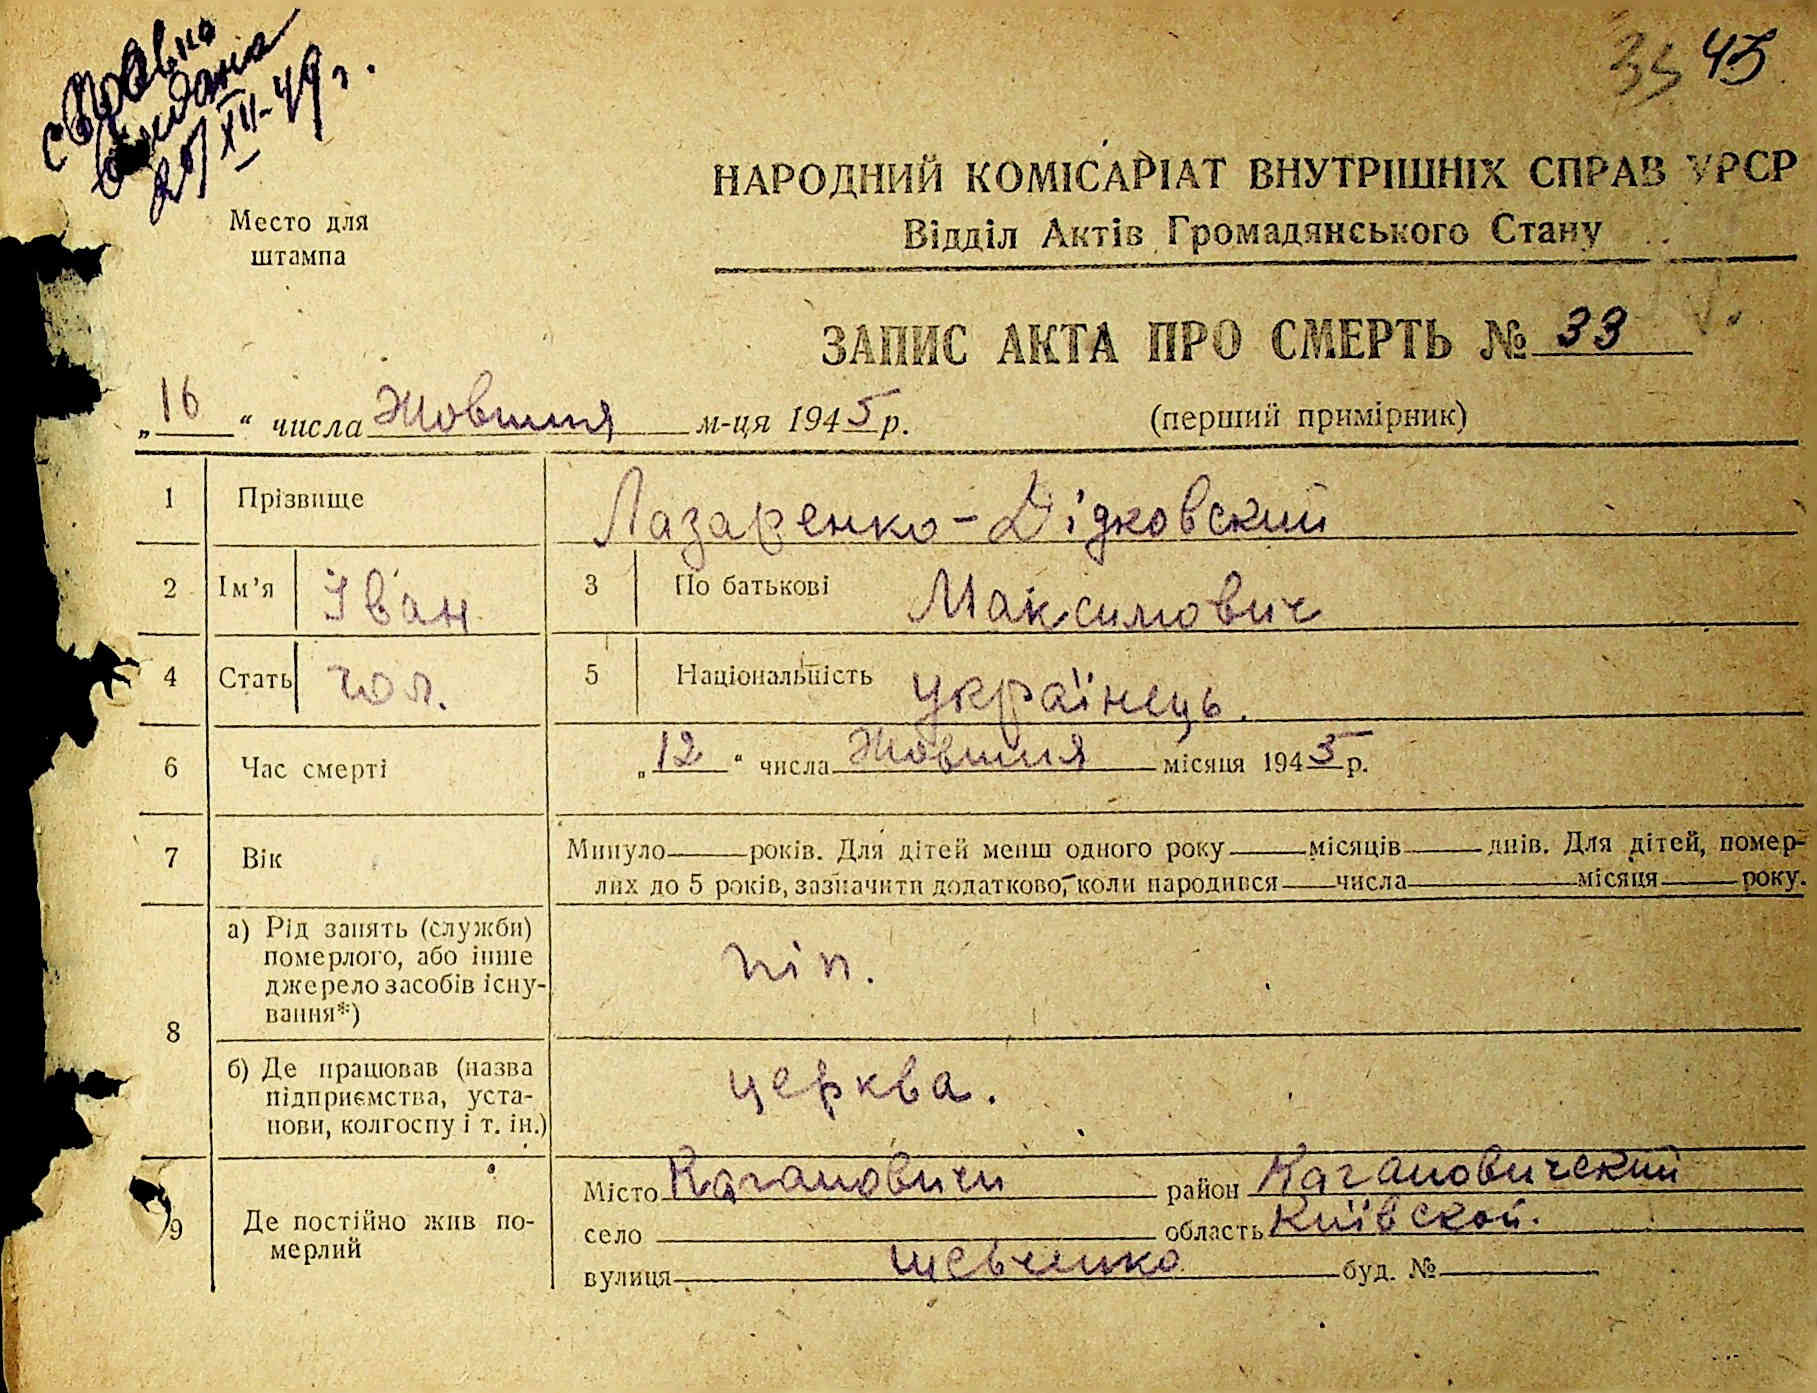 справка
выдана
20/XII-49 г.
35 45
Место для
штампа
НАРОДНИЙ КОМІСАРІАТ ВНУТРІШНІХ СПРАВ УРСР
Відділ Актів Громадянського Стану
ЗАПИС АКТА ПРО СМЕРТЬ № 33
„16“ числа Жовтня м-ця 1945 р.
(перший примірник)
1 Прізвище Лазаренко-Дідковский
2 Ім'я Іван 3 По батькові Максимович
4 Стать чол. 5 Національність українець.
6 Час смерті „12“ числа Жовтня місяця 1945 р.
7 Вік Минуло років. Для дітей менш одного року місяців днів. Для дітей, помер-
лих до 5 років, зазначити додатково, коли народився числа місяця року.
8 а) Рід занять (служби)
померлого, або інше
джерело засобів існу-
вання*)
піп.
б) Де працював (назва
підприємства, уста-
нови, колгоспу і т. ін.)
церква.
9 Де постійно жив по-
мерлий
Місто Кагановичи район Кагановичский
село область Київской.
вулиця Шевченко буд. №